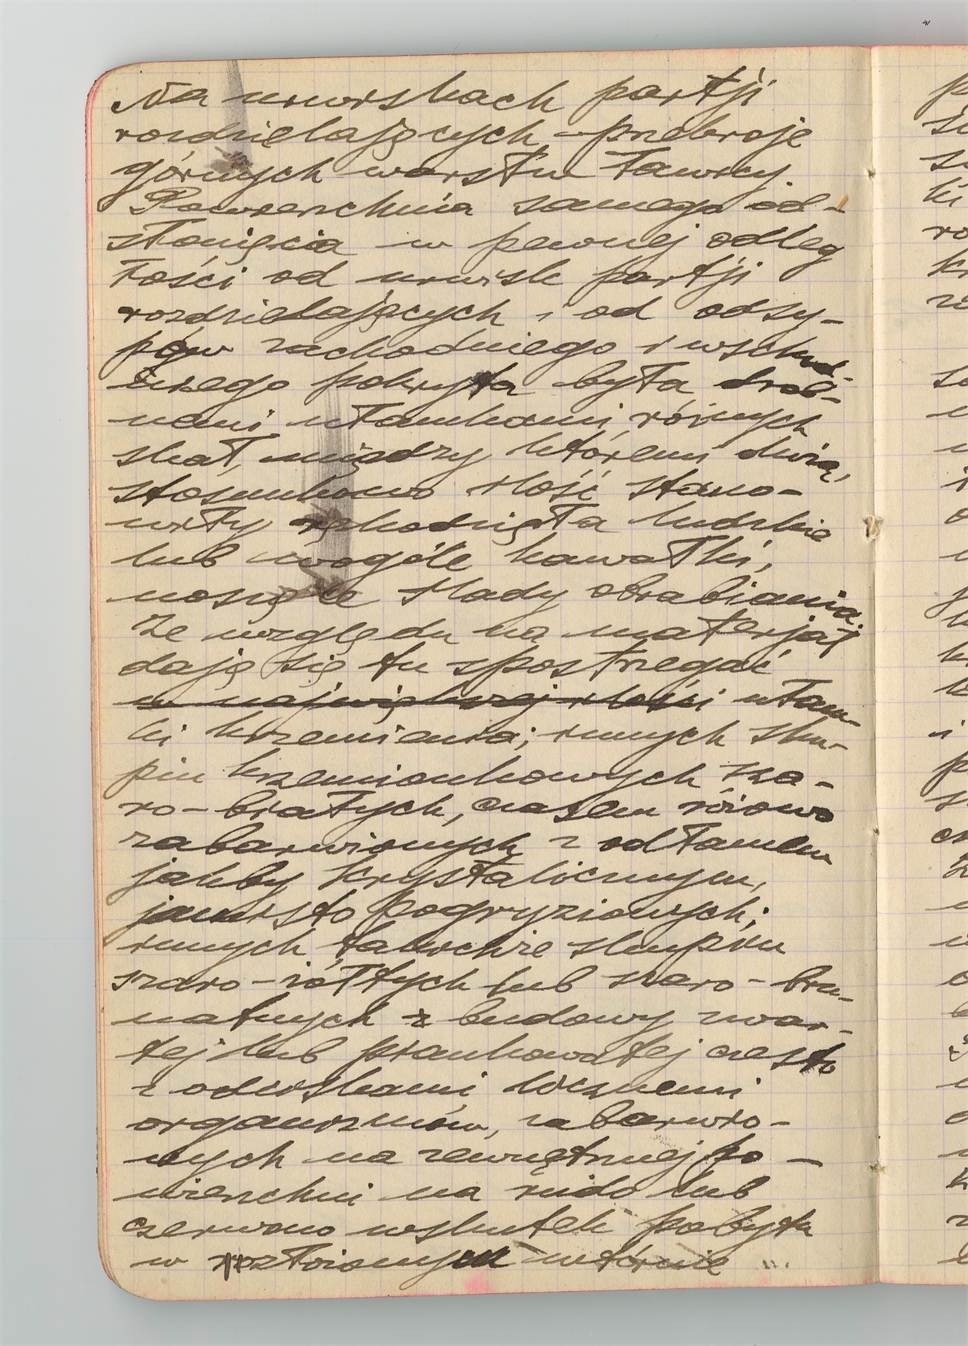 Na urwiskach partji
rozdzielających – przebroje
górnych warstw ławicy
Powierzchnia samego od-
słonięcia w pewnej odleg
łości od urwisk partji
rozdzielających i od odsy-
pów zachodniego i wschod-
niego pokryta była drob-
nemi ułamkami różnych
skał, między któremi dużą,
stosunkowo ilość stano-
wiły rękodzieła ludzkie
lub wogóle kawałki,
noszące ślady obrabiania.
Ze względu na materjał
dają się tu spostrzegać
w największej ilości ułam-
ki krzemienia; innych sku-
pin krzemionkowych sza-
ro-białych, czasem różowo
zabarwionych z odłamem
jakby krystalicznym,
jamisto pogryzionych;
innych takichże skupin
szaro-żółtych lub szaro-bru-
natnych z budowy zwar-
tej lub piankowatej często
z odciskami licznemi
organizmów, zabarwio-
nych na zewnętrznej po-
wierzchni na rudo lub
czerwono wskutek pobytu
w utworze